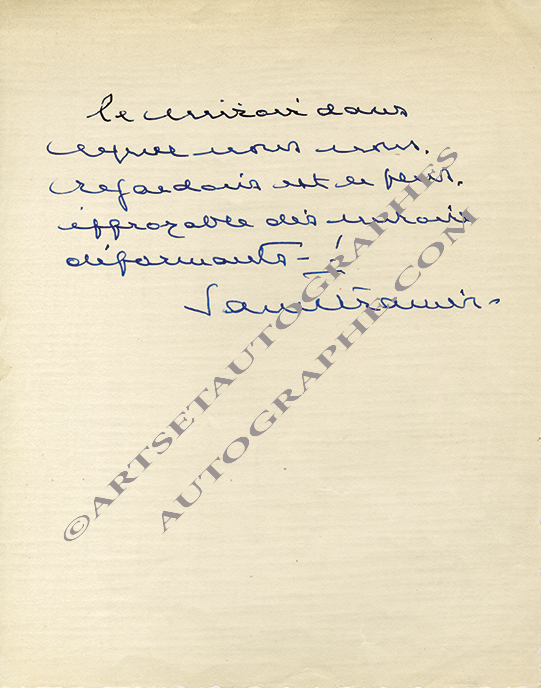 le miroir dans
lequel nous nous
regardons est le plus
effroyable des miroirs
déformants - !
©ARTSETAUTOGRAPHES
AUTOGRAPHE.COM